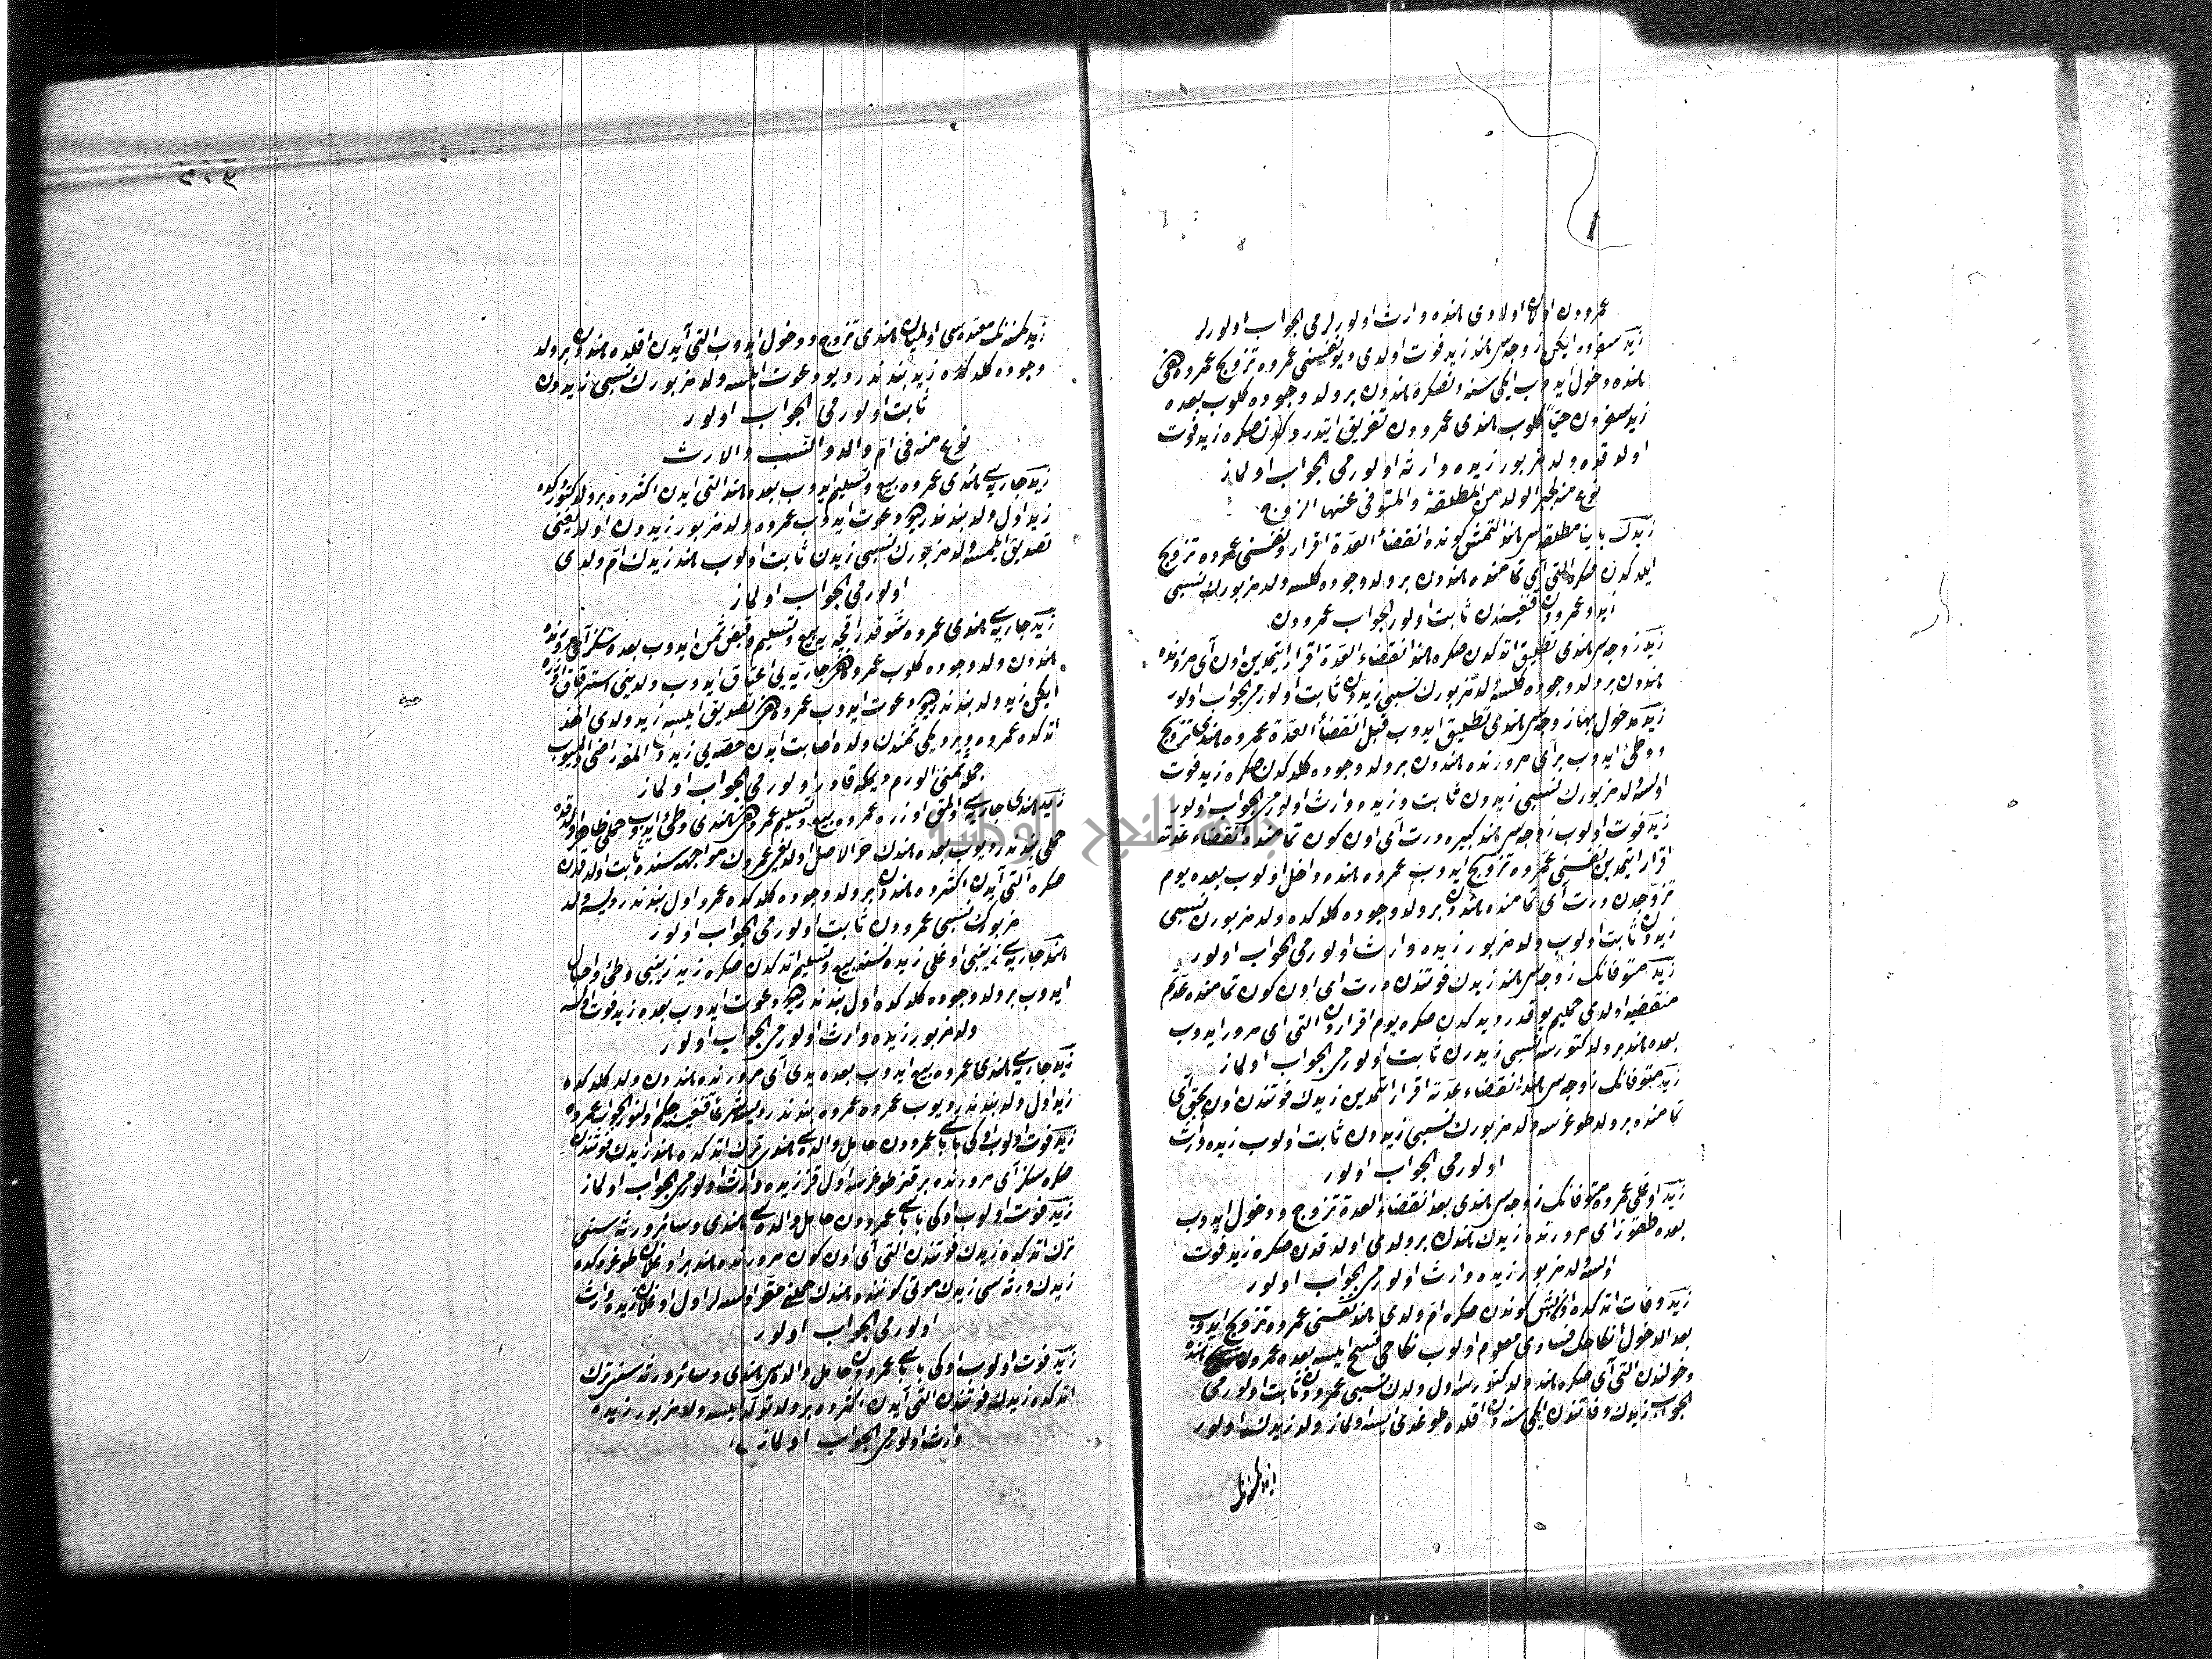 عمرودن اولان اولادی هنده وارث اولورلرمی الجواب اولورلر
زید سفرده ایکن زوجه‌سی هند زید فوت اولدی دیو نفسنی عمروه تزویج عمرو دخی
هنده دخول ایدوب ایکی سنه‌دنصکره هنددن بر ولد وجوده کلوب بعده
زید سفردن حیاً کلوب هندی عمرودن تفریق ایتدردکدن صکره زید فوت
اولدقده ولد مزبور زیده وارث اولورمی الجواب اولماز
نوع منه فی الولد من المطلقة والمتوفی عنها الزوج
زیدک بایناً مطلقه‌سی هند التمش کونده انقضاء العدة اقرار ونفسنی عمروه تزویج
ایلدکدن صکره التی آی تمامنده هنددن بر ولد وجوده کلسه ولد مزبورک نسبی
زید وعمرودن قنغیسندن ثابت اولور الجواب عمرودن
زید زوجه‌سی هندی تطلیق اتدکدن صکره هند انقضاء العدة اقرار ایتمدین اون آی مرورنده
هنددن بر ولد وجوده کلسه ولد مزبورک نسبی زیددن ثابت اولورمی الجواب اولور
زید مدخول بها زوجه‌سی هندی تطلیق ایدوب قبل انقضاء العدة عمرو هندی تزوج
ووطئ ایدوب بر آی مرورنده هنددن بر ولد وجوده کلدکدن صکره زید فوت
اولسه ولد مزبورک نسبی زیددن ثابت وزیده وارث اولورمی الجواب اولور
زید فوت اولوب زوجه‌سی هند کبیره درت آی اون کون تمامنده انقضاء عدته
اقرار ایتمدین نفسنی عمروه تزویج ایدوب عمرو هنده داخل اولوب بعده یوم
تزوجدن درت آی تمامنده هنددن بر ولد وجوده کلدکده ولد مزبورک نسبی
زیددن ثابت اولوب ولد مزبور زیده وارث اولورمی الجواب اولور
زید متوفانک زوجه‌سی هند زیدک فوتندن درت آی اون کون تمامنده عدتم
منقضیه اولدی حملم یوقدر دیدکدن صکره یوم اقراردن التی آی مرور ایدوب
بعده هند بر ولد کتورسه نسبی زیددن ثابت اولورمی الجواب اولماز
زید متوفانک زوجه‌سی هند انقضاء عدته اقرار اتمدین زیدک فوتندن اون بچق آی
تمامنده بر ولد طوغرسه ولد مزبورک نسبی زیددن ثابت اولوب زیده وارث
اولورمی الجواب اولور
زید اوغلی عمرو متوفانک زوجه‌سی هندی بعد انقضاء العدة تزوج ودخول ایدوب
بعده طقوز آی مرورنده زیدک هنددن بر ولدی اولدقدن صکره زید فوت
اولسه ولد مزبور زیده وارث اولورمی الجواب اولور
زید وفات اتدکده اون بش کوندن صکره ام ولدی هند نفسنی عمروه تزویج ایدوب
بعد الدخول نکاحک فسادی معلوم اولوب نکاحی فسخ ایلسه بعده عمروک هنده
دخولندن التی آی صکره هند ولد کتورسه اول ولدک نسبی عمرودن ثابت اولورمی
الجواب زیدک وفاتندن ایکی سنه‌دن اقلده طوغدی ایسه اولماز ولد زیدک اولور
زید کمسنه‌نک
٢٠٣
زید کمسنه‌نک معتده‌سی اولمیان هندی تزوج ودخول ایدوب التی آیدن اقلده هنددن بر ولد
وجوده کلدکده زید بندندر دیو دعوت ایلسه ولد مزبورک نسبی زیددن
ثابت اولورمی الجواب اولور
نوع منه فی ام والد والنسب والارث
زید جاریه‌سی هندی عمروه بیع وتسلیم ایدوب بعده هند التی آیدن اکثرده بر ولد کتوردکده
زید اول ولد بندندر دیو دعوت ایدوب عمرو ولد مزبور زیددن اولدیغنی
تصدیق ایلسه ولد مزبورک نسبی زیددن ثابت اولوب هند زیدک ام ولدی
اولورمی الجواب اولماز
زید جاریه‌سی هندی عمروه شو قدر اقچه‌یه بیع وتسلیم وقبض ثمن ایدوب بعده سکز آی مرورنده
هنددن ولد وجوده کلوب عمرو دخی جاریه‌یی اعتاق ایدوب ولدینی استرقاق اوزره
ایکن زید ولد بندندر دیو دعوت ایدوب عمرو دخی تصدیق ایلسه زید ولدی اخذ
اتدکده عمرو ویردیکی ثمندن ولده اصابت ایدن حصه‌یی زیددن المغه راضی اولمیوب
جمله ثمنی الورم دیمکه قادر اولورمی الجواب اولماز
حملی بندندر دیوب بعده هندک حر الاصل اولدیغی عمروک مواجهه‌سنده ثابت اولدقدن
صکره التی آیدن اکثرده هنددن بر ولد وجوده کلدکده عمرو اول بندندر دیسه ولد
مزبورک نسبی عمرودن ثابت اولورمی الجواب اولور
هند جاریه‌سی زینبی اوغلی زیده بیع وتسلیم اتدکدن صکره زید زینبی وطئ واحبال
ایدوب بر ولد وجوده کلدکده اول بندندر دیو دعوت ایدوب بعده زید فوت اولسه
ولد مزبور زیده وارث اولورمی الجواب اولور
زید جاریه‌سی هندی عمروه بیع ایدوب بعده یدی آی مرورنده هنددن ولد کلدکده
زید اول ولد بندندر دیوب عمرو بندندر دیسه شرعاً قنغیسنه حکم اولنور الجواب عمروه
زید فوت اولوب اوکی باباسی عمرودن حامل والده‌سی هندی ترک اتدکده هند زیدک فوتندن
صکره سکز آی مرورنده بر قز طوغرسه اول قز زیده وارث اولورمی الجواب اولماز
زید فوت اولوب اوکی باباسی عمرودن حامل والده‌سی هندی وسائر ورثه‌سنی
ترک اتدکده زیدک فوتندن التی آی اون کون مرورنده هند بر اوغلان طوغردکده
زیدک ورثه‌سی زیدک موتی کوننده هندک حملنه مقر اولسه‌لر اول اوغلان زیده وارث
اولورمی الجواب اولور
زید فوت اولوب اوکی باباسی عمرودن حامل والده‌سی هندی وسائر ورثه‌سنی ترک
اتدکده زیدک فوتندن التی آیدن اکثرده بر ولد تولد ایلسه ولد مزبور زیده
وارث اولورمی الجواب اولماز
جامعة النجاح الوطنية